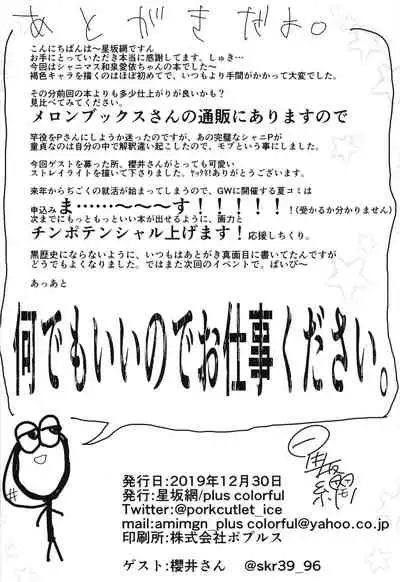 あとがきだよ。
こんにちばんは〜星坂網ですん
お手にとっていただき本当に感謝してます。しゅき…
今回はシャニマス和泉愛依ちゃんの本でした〜
褐色キャラを描くのはほぼ初めてで、いつもより手間がかかって大変でした。
その分前回の本よりも多少仕上がりが良いかも?
見比べてみてください。
メロンブックスさんの通販にありますので
竿役をPさんにしようか迷ったのですが、あの完璧なシャニPが
童貞なのは自分の中で解釈違い起こしたので、モブという事にしました。
今回ゲストを募った所、櫻井さんがとっても可愛い
ストレイライトを描いて下さりました。ﾔｯﾀｾﾞ!ありがとうございます。
来年からぢごくの就活が始まってしまうので、GWに開催する夏コミは
申込みま……〜〜〜す!!!!!!(受かるか分かりません)
次までにもっともっといい本が出せるように、画力と
チンポテンシャル上げます!応援しちくり。
黒歴史にならないように、いつもはあとがき真面目に書いてたんですが
どうでもよくなりました。ではまた次回のイベントで。ばいび〜
あっあと
何でもいいのでお仕事ください。
星坂網
発行日:2019年12月30日
発行:星坂網/plus colorful
Twitter:@porkcutlet_ice
mail:amimgn_plus colorful@yahoo.co.jp
印刷所:株式会社ポプルス
ゲスト:櫻井さん @skr39_96